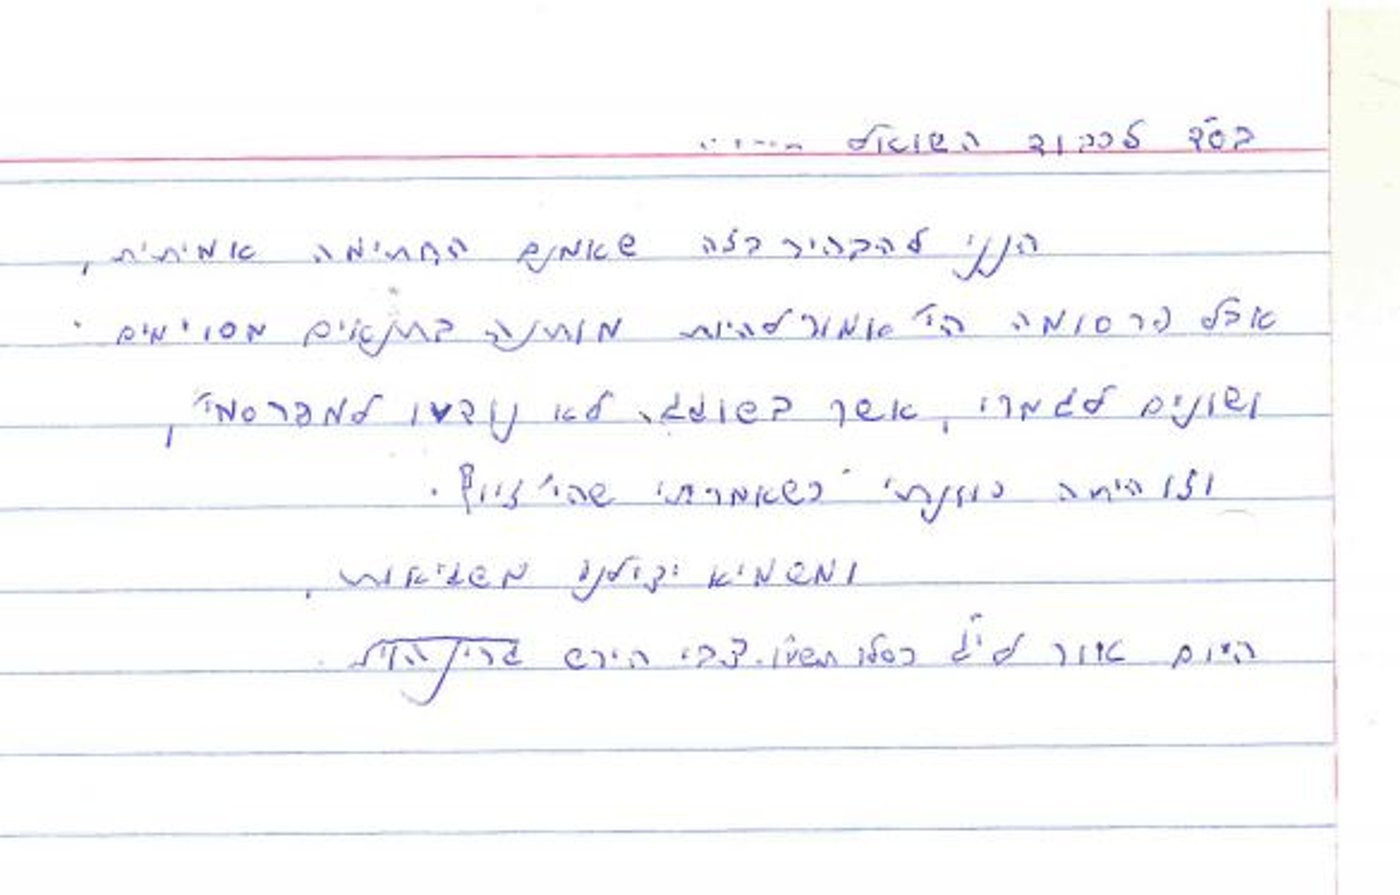 בס"ד לכבוד השואל
הנני להבהיר בזה שאמנם החתימה אמיתית,
אבל פרסומה הי' אמור להיות מותנה בתנאים מסוימים
ושונים לגמרי, אשר בשוגג, לא נודעו למפרסמי',
וזו היתה כוונתי כשאמרתי שהי' זיוף.
ומשמיא יצילנו משגיאות.
היום אור לי"ג כסלו תשע"ו. צבי הירש